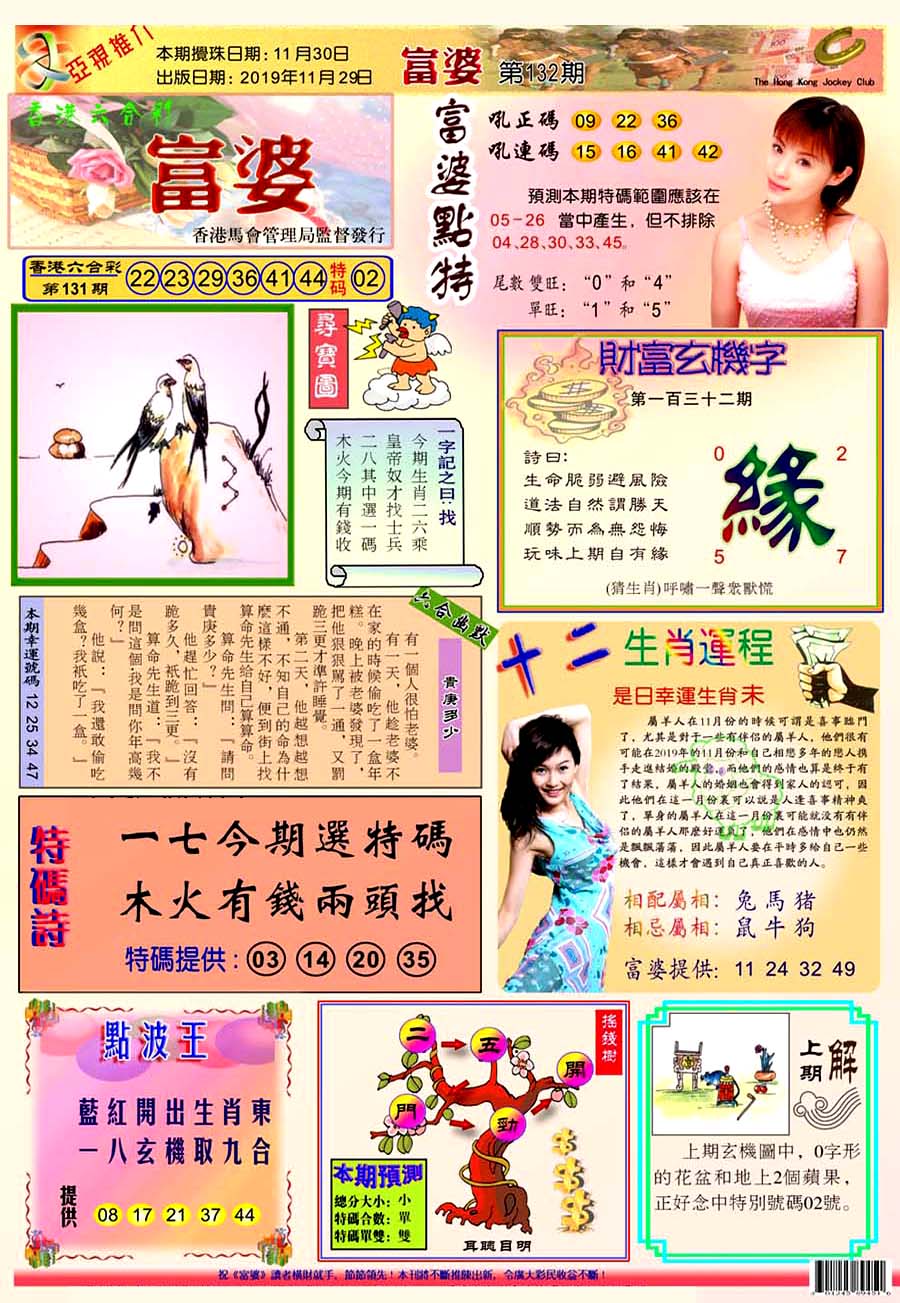 亞視推介
本期攪珠日期：11月30日
出版日期：2019年11月29日
富婆 第132期
The Hong Kong Jockey Club
香港六合彩
富婆
香港馬會管理局監督發行
香港六合彩
第131期
22 23 29 36 41 44 特码 02
富婆點特
吼正碼 09 22 36
吼連碼 15 16 41 42
預測本期特碼範圍應該在
05-26 當中產生，但不排除
04、28、30、33、45。
尾數 雙旺：“0”和“4”
單旺：“1”和“5”
尋寶圖
一字記之曰：找
今期生肖二六乘
皇帝奴才找士兵
二八其中選一碼
木火今期有錢收
財富玄機字
第一百三十二期
詩曰：
生命脆弱避風險
道法自然謂勝天
順勢而為無怨悔
玩味上期自有緣
0 2
緣
5 7
(猜生肖)呼嘯一聲衆獸慌
六合幽默
貴庚多少
有一個人很怕老婆。
有一天，他趁老婆不
在家的時候偷吃了一盒年
糕。晚上被老婆發現了，
把他狠狠罵了一通，又罰
跪三更才準許睡覺。
第二天，他越想越想
不通，不知自己的命為什
麽這樣不好，便到街上找
算命先生給自己算算命。
算命先生問：『請問
貴庚多少？』
他趕忙回答：『沒有
跪多久，衹跪到三更。』
算命先生道：『我不
是問這個，我是問你年高幾
何？』
他說：『我還敢偷吃
幾盒？我衹吃了一盒。』
本期幸運號碼 12 25 34 47
十二生肖運程
是日幸運生肖未
屬羊人在11月份的時候可謂是喜事臨門
了，尤其是對于一些有伴侶的屬羊人，他們很有
可能在2019年的11月份和自己相戀多年的戀人攜
手走進結婚的殿堂，而他們的感情也算是終于有
了結果，屬羊人的婚姻也會得到家人的認可，因
此他們在這一月份裏可以說是人逢喜事精神爽
了，單身的屬羊人在這一月份裏可能就沒有有伴
侶的屬羊人那麽好運氣了，他們在感情中也仍然
是飄飄蕩蕩，因此屬羊人要在平時多給自己一些
機會，這樣才會遇到自己真正喜歡的人。
相配屬相：兔馬猪
相忌屬相：鼠牛狗
富婆提供：11 24 32 49
特碼詩
一七今期選特碼
木火有錢兩頭找
特碼提供：03 14 20 35
點波王
藍紅開出生肖東
一八玄機取九合
提供 08 17 21 37 44
搖錢樹
二 五 開
門 勁
本期預測
總分大小：小
特碼合數：單
特碼單雙：雙
耳聰目明
上期解
上期玄機圖中，0字形
的花盆和地上2個蘋果，
正好念中特別號碼02號。
祝《富婆》讀者橫財就手，節節領先！本刊將不斷推陳出新，令廣大彩民收益不斷！